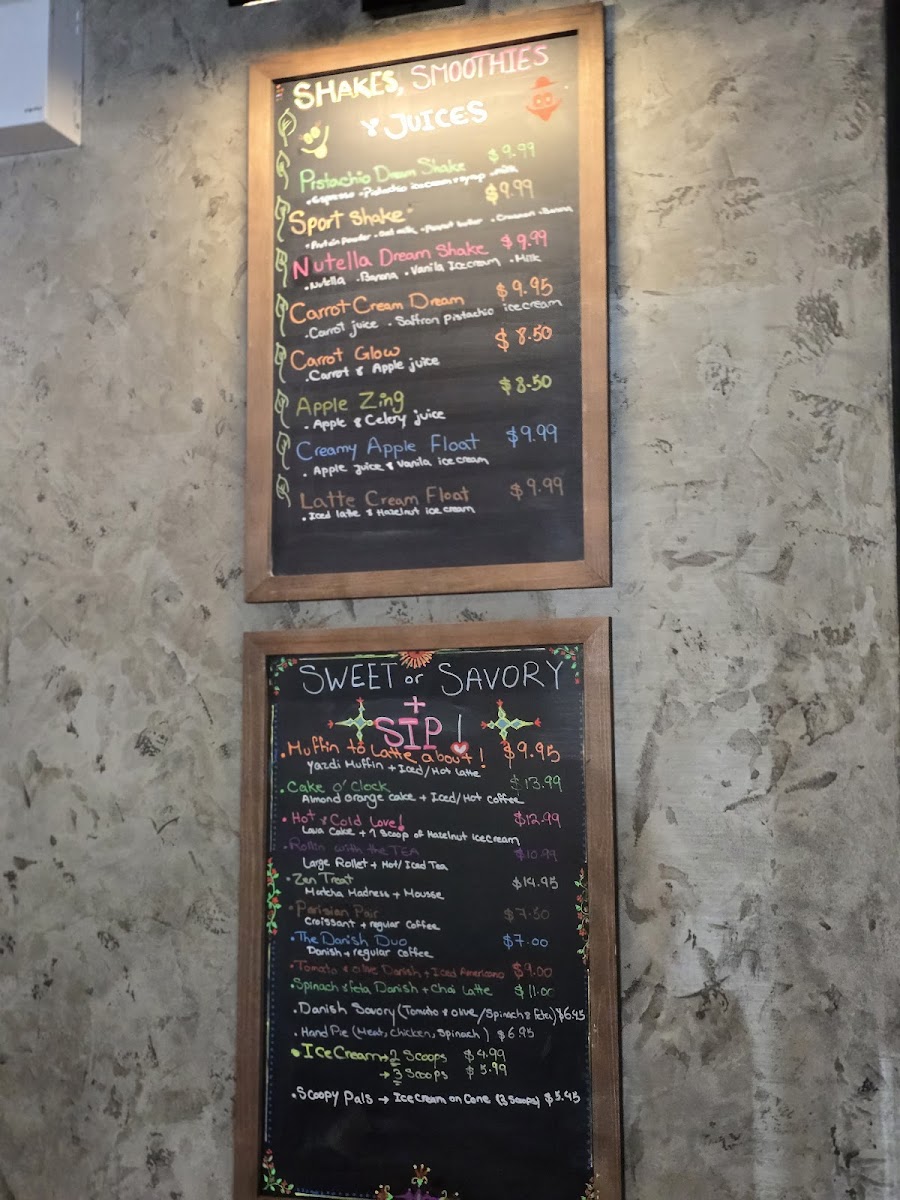 SHAKES, SMOOTHIES
Y JUICES
Pistachio Dream Shake $9.99
• Espresso • Pistachio icecream & syrup • milk
Sport Shake $9.99
• Protein powder • Oat milk • Peanut butter • Cinnamon • Banana
Nutella Dream Shake $9.99
• Nutella • Banana • Vanila Icecream • Milk
Carrot Cream Dream $9.95
• Carrot juice • Saffron pistachio icecream
Carrot Glow $8.50
• Carrot & Apple juice
Apple Zing $8.50
• Apple & Celery juice
Creamy Apple Float $9.99
• Apple juice & Vanila ice cream
Latte Cream Float $9.99
• Iced latte & Hazelnut ice cream
SWEET or SAVORY
+
SIP!
• Muffin to Latte about! $9.95
Yazdi Muffin + Iced/Hot latte
• Cake o'Clock $13.99
Almond orange cake + Iced/Hot coffee
• Hot & Cold Love! $12.99
Lava Cake + 1 Scoop of Hazelnut icecream
• Rollin with the TEA $10.99
Large Rollet + Hot/Iced Tea
• Zen Treat $14.95
Matcha Madness + Mousse
• Parisian Pair $7.50
Croissant + regular Coffee
• The Danish Duo $7.00
Danish + regular Coffee
• Tomato & olive Danish + Iced Americano $9.00
• Spinach & feta Danish + Chai Latte $11.00
• Danish Savory (Tomato & olive/Spinach & Feta) $6.45
• Hand Pie (Meat, Chicken, Spinach) $6.95
• Ice Cream → 2 Scoops $4.99
→ 3 Scoops $5.99
• Scoopy Pals → Ice Cream on Cone (3 Scoops) $5.45